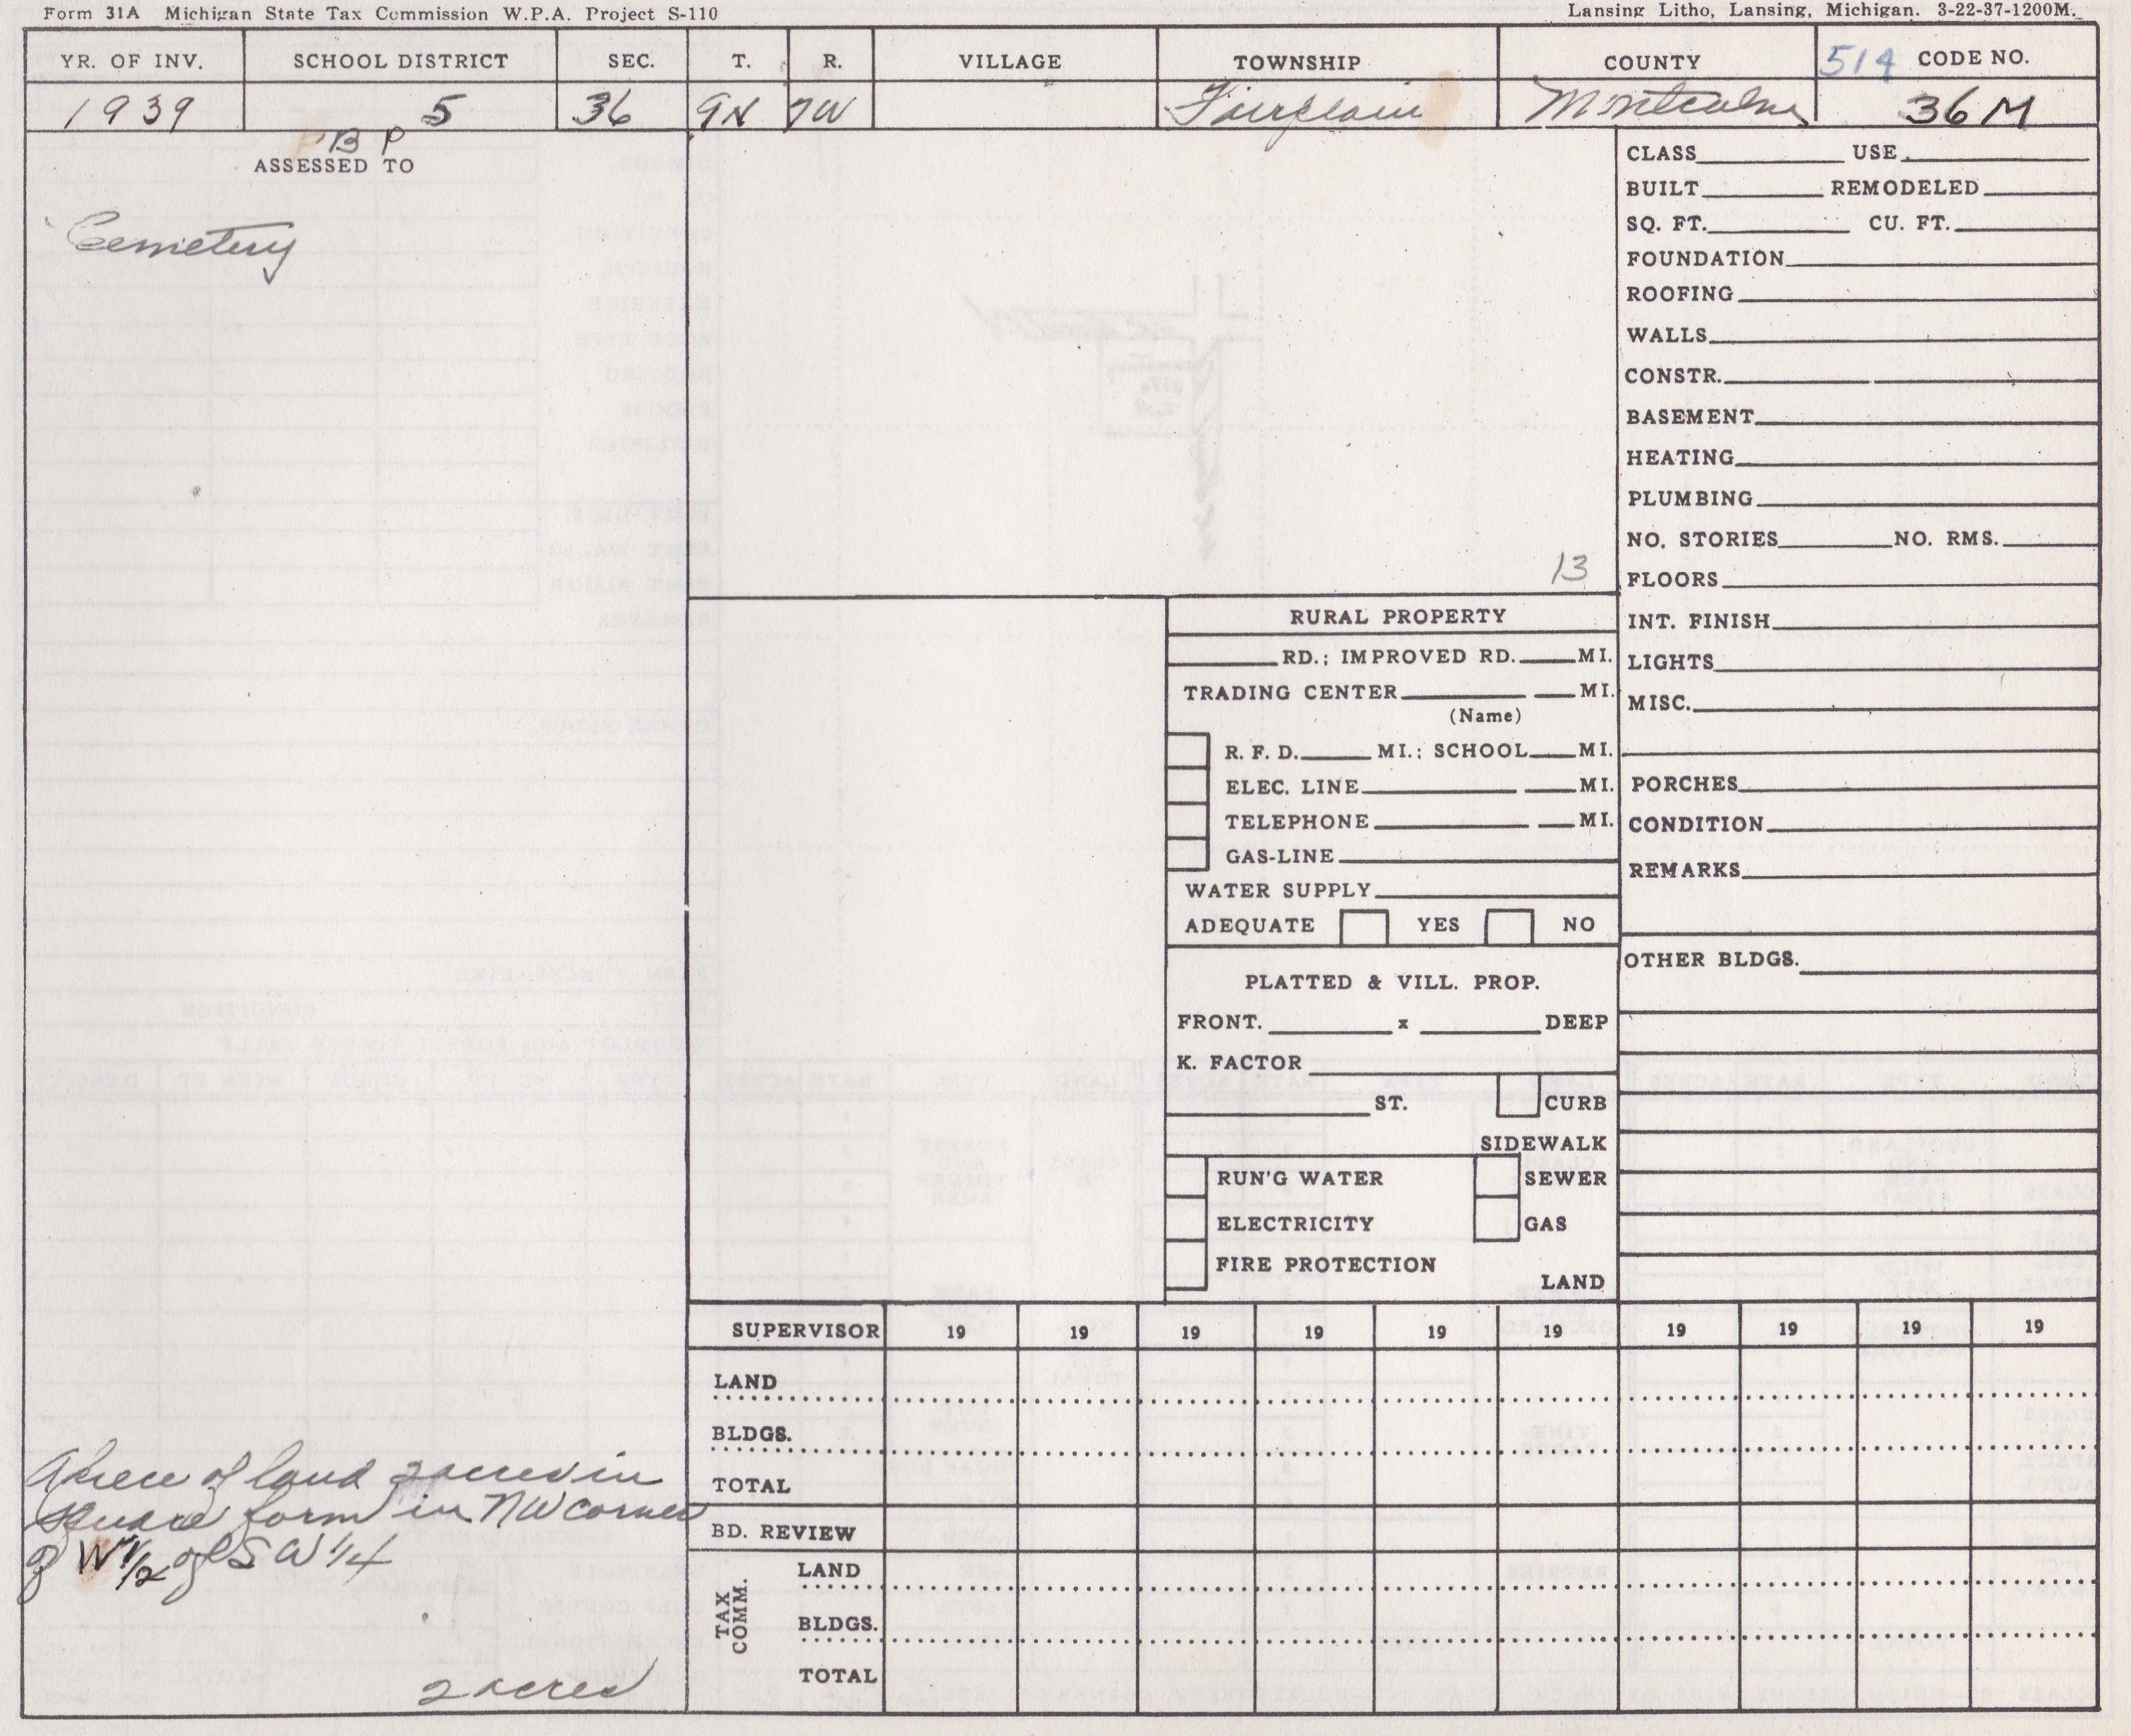 Form 31A Michigan State Tax Commission W.P.A. Project S-110
Lansing Litho, Lansing, Michigan. 3-22-37-1200M.
YR. OF INV. SCHOOL DISTRICT SEC. T. R. VILLAGE TOWNSHIP COUNTY 514 CODE NO.
1939 5 36 9N 7W Fairplain Montcalm 36 M
B P
ASSESSED TO
Cemetery
CLASS USE
BUILT REMODELED
SQ. FT. CU. FT.
FOUNDATION
ROOFING
WALLS
CONSTR.
BASEMENT
HEATING
PLUMBING
NO. STORIES NO. RMS.
13
FLOORS
INT. FINISH
LIGHTS
MISC.
PORCHES
CONDITION
REMARKS
OTHER BLDGS.
RURAL PROPERTY
RD.; IMPROVED RD. MI.
TRADING CENTER MI.
(Name)
R. F. D. MI.; SCHOOL MI.
ELEC. LINE MI.
TELEPHONE MI.
GAS-LINE
WATER SUPPLY
ADEQUATE YES NO
PLATTED & VILL. PROP.
FRONT. x DEEP
K. FACTOR
ST. CURB
SIDEWALK
RUN'G WATER SEWER
ELECTRICITY GAS
FIRE PROTECTION
LAND
SUPERVISOR 19 19 19 19 19 19 19 19 19 19
LAND
BLDGS.
TOTAL
BD. REVIEW
TAX COMM.
LAND
BLDGS.
TOTAL
A piece of land 2 acres in
square form in NW corner
of W 1/2 of SW 1/4
2 acres